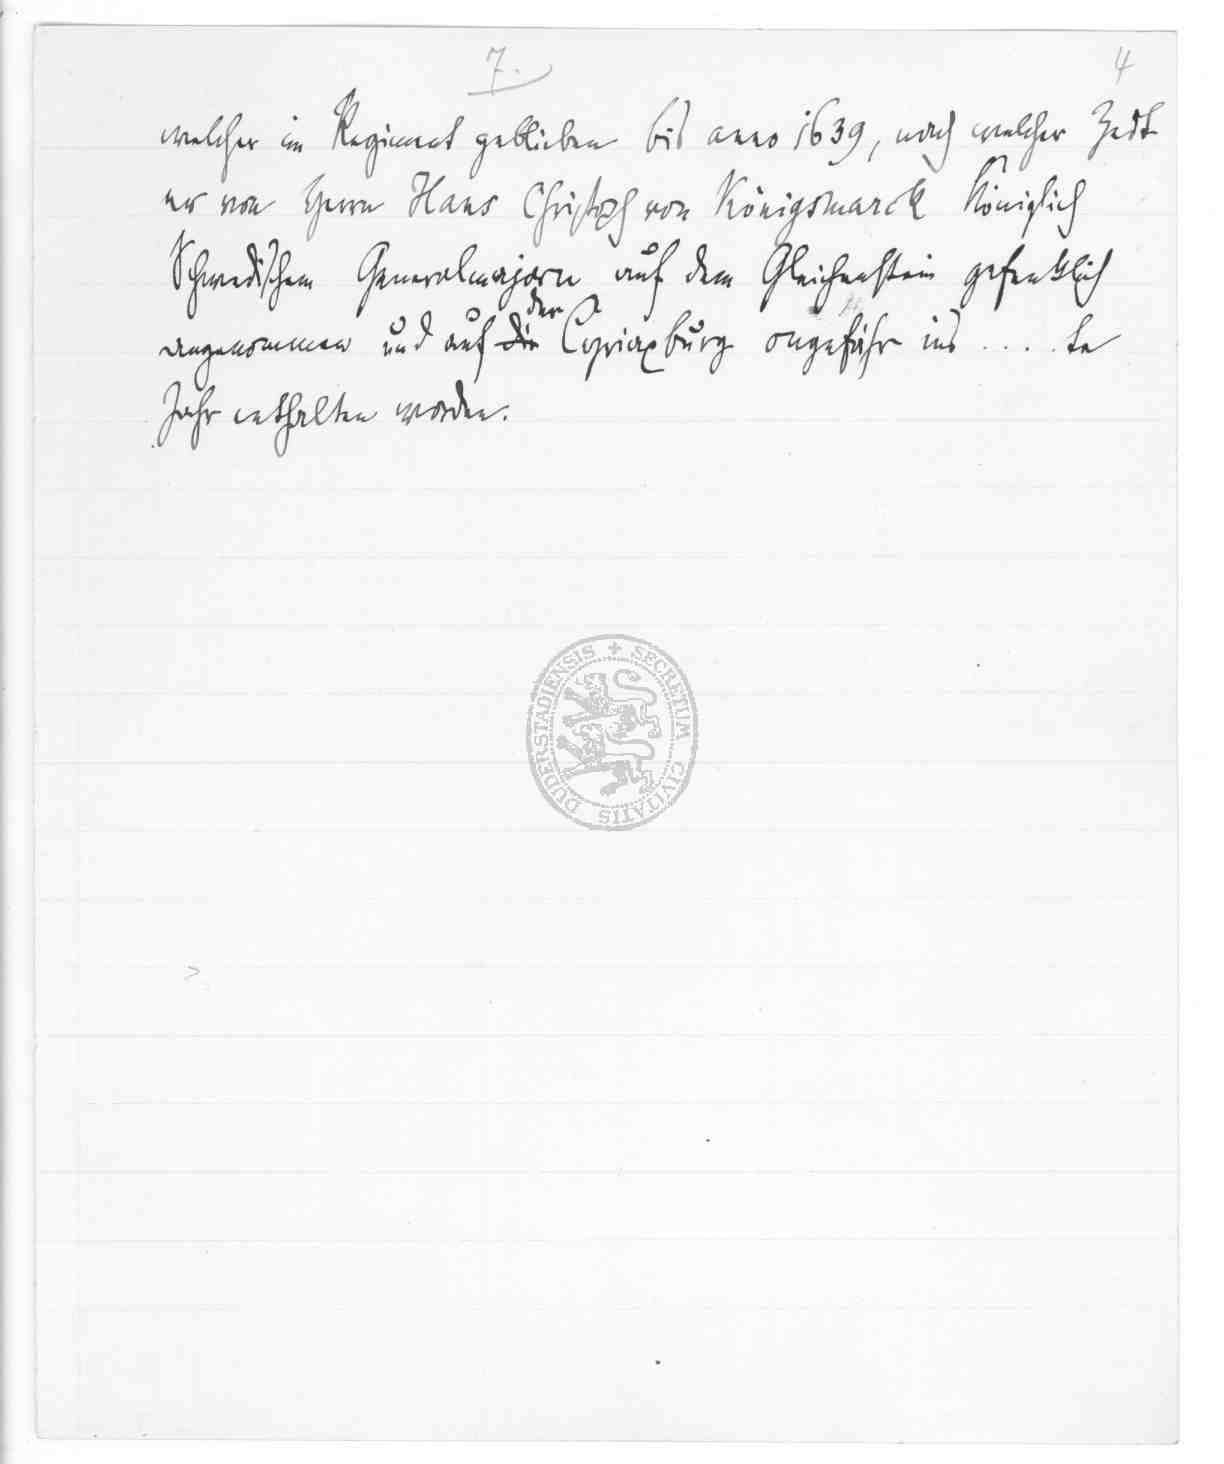 7.
4
welcher im Regiment geblieben bis anno 1639, nach welcher Zeit
er von Herrn Hans Christoph von Königsmarck Königlich
Schwedischem Generalmajorn auf dem Gleichenstein gefenklich
angenommen und auf die der Cyriaxburg ongefähr ins . . . . te
Jahr enthalten worden.
SECRETUM CIVITATIS DUDERSTADIENSIS